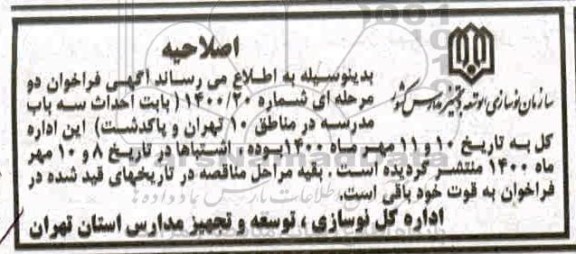 اصلاحیه
سازمان نوسازی، توسعه و تجهیز مدارس کشور
بدینوسیله به اطلاع می رساند آگهی فراخوان دو
مرحله ای شماره ۱۴۰۰/۲۰ ( بابت احداث سه باب
مدرسه در مناطق ۱۰ تهران و پاکدشت) این اداره
کل به تاریخ ۱۰ و ۱۱ مهر ماه ۱۴۰۰ بوده ، اشتباها در تاریخ ۸ و ۱۰ مهر
ماه ۱۴۰۰ منتشر گردیده است . بقیه مراحل مناقصه در تاریخهای قید شده در
فراخوان به قوت خود باقی است.
اداره کل نوسازی ، توسعه و تجهیز مدارس استان تهران